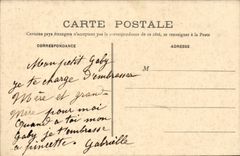 CARTE POSTALE
Certains pays étrangers n'acceptant pas la correspondance de ce côté, se renseigner à la Poste
CORRESPONDANCE
ADRESSE
Mon petit Gaby
je te charge d'embrasser
Mère et grand
Mère pour moi
Quand à toi mon
Gaby je t'embrasse
a pincette. Gabrielle
M